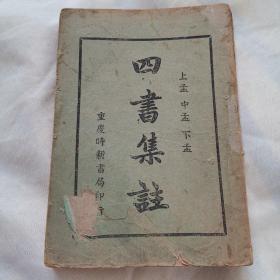 上孟 中孟 下孟
四書集註
重慶時新書局印行